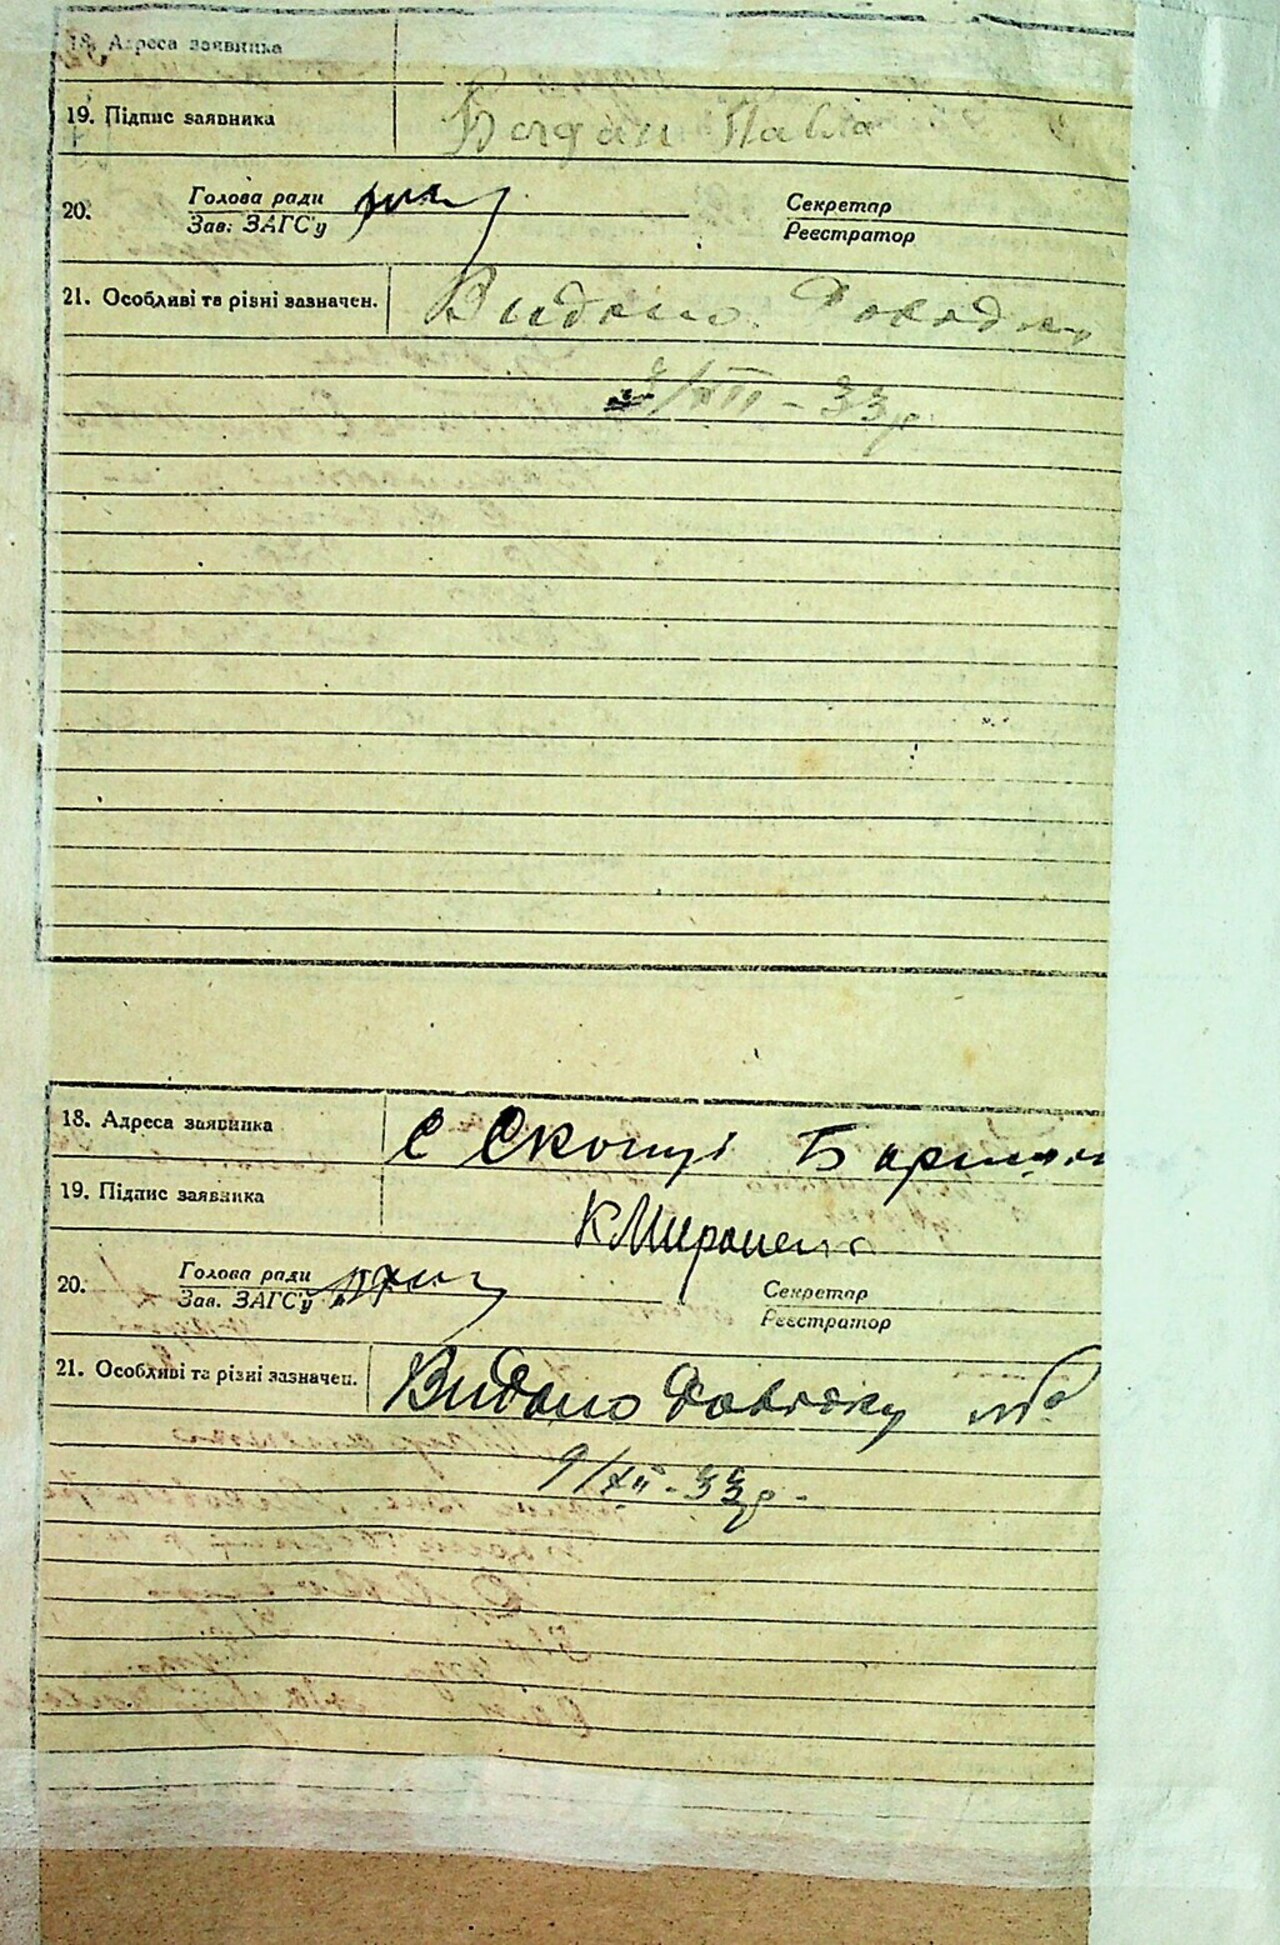 18. Адреса заявника
19. Підпис заявника Богдан Павло
20. Голова ради Секретар
Зав. ЗАГС'у Реєстратор
21. Особливі та різні зазначен. Видано Довідку
/XII - 33р.
18. Адреса заявника с Скопці Баришпі
19. Підпис заявника К Мироненко
20. Голова ради Секретар
Зав. ЗАГС'у Реєстратор
21. Особливі та різні зазначен. Видано Довідку
9/XII - 33р.